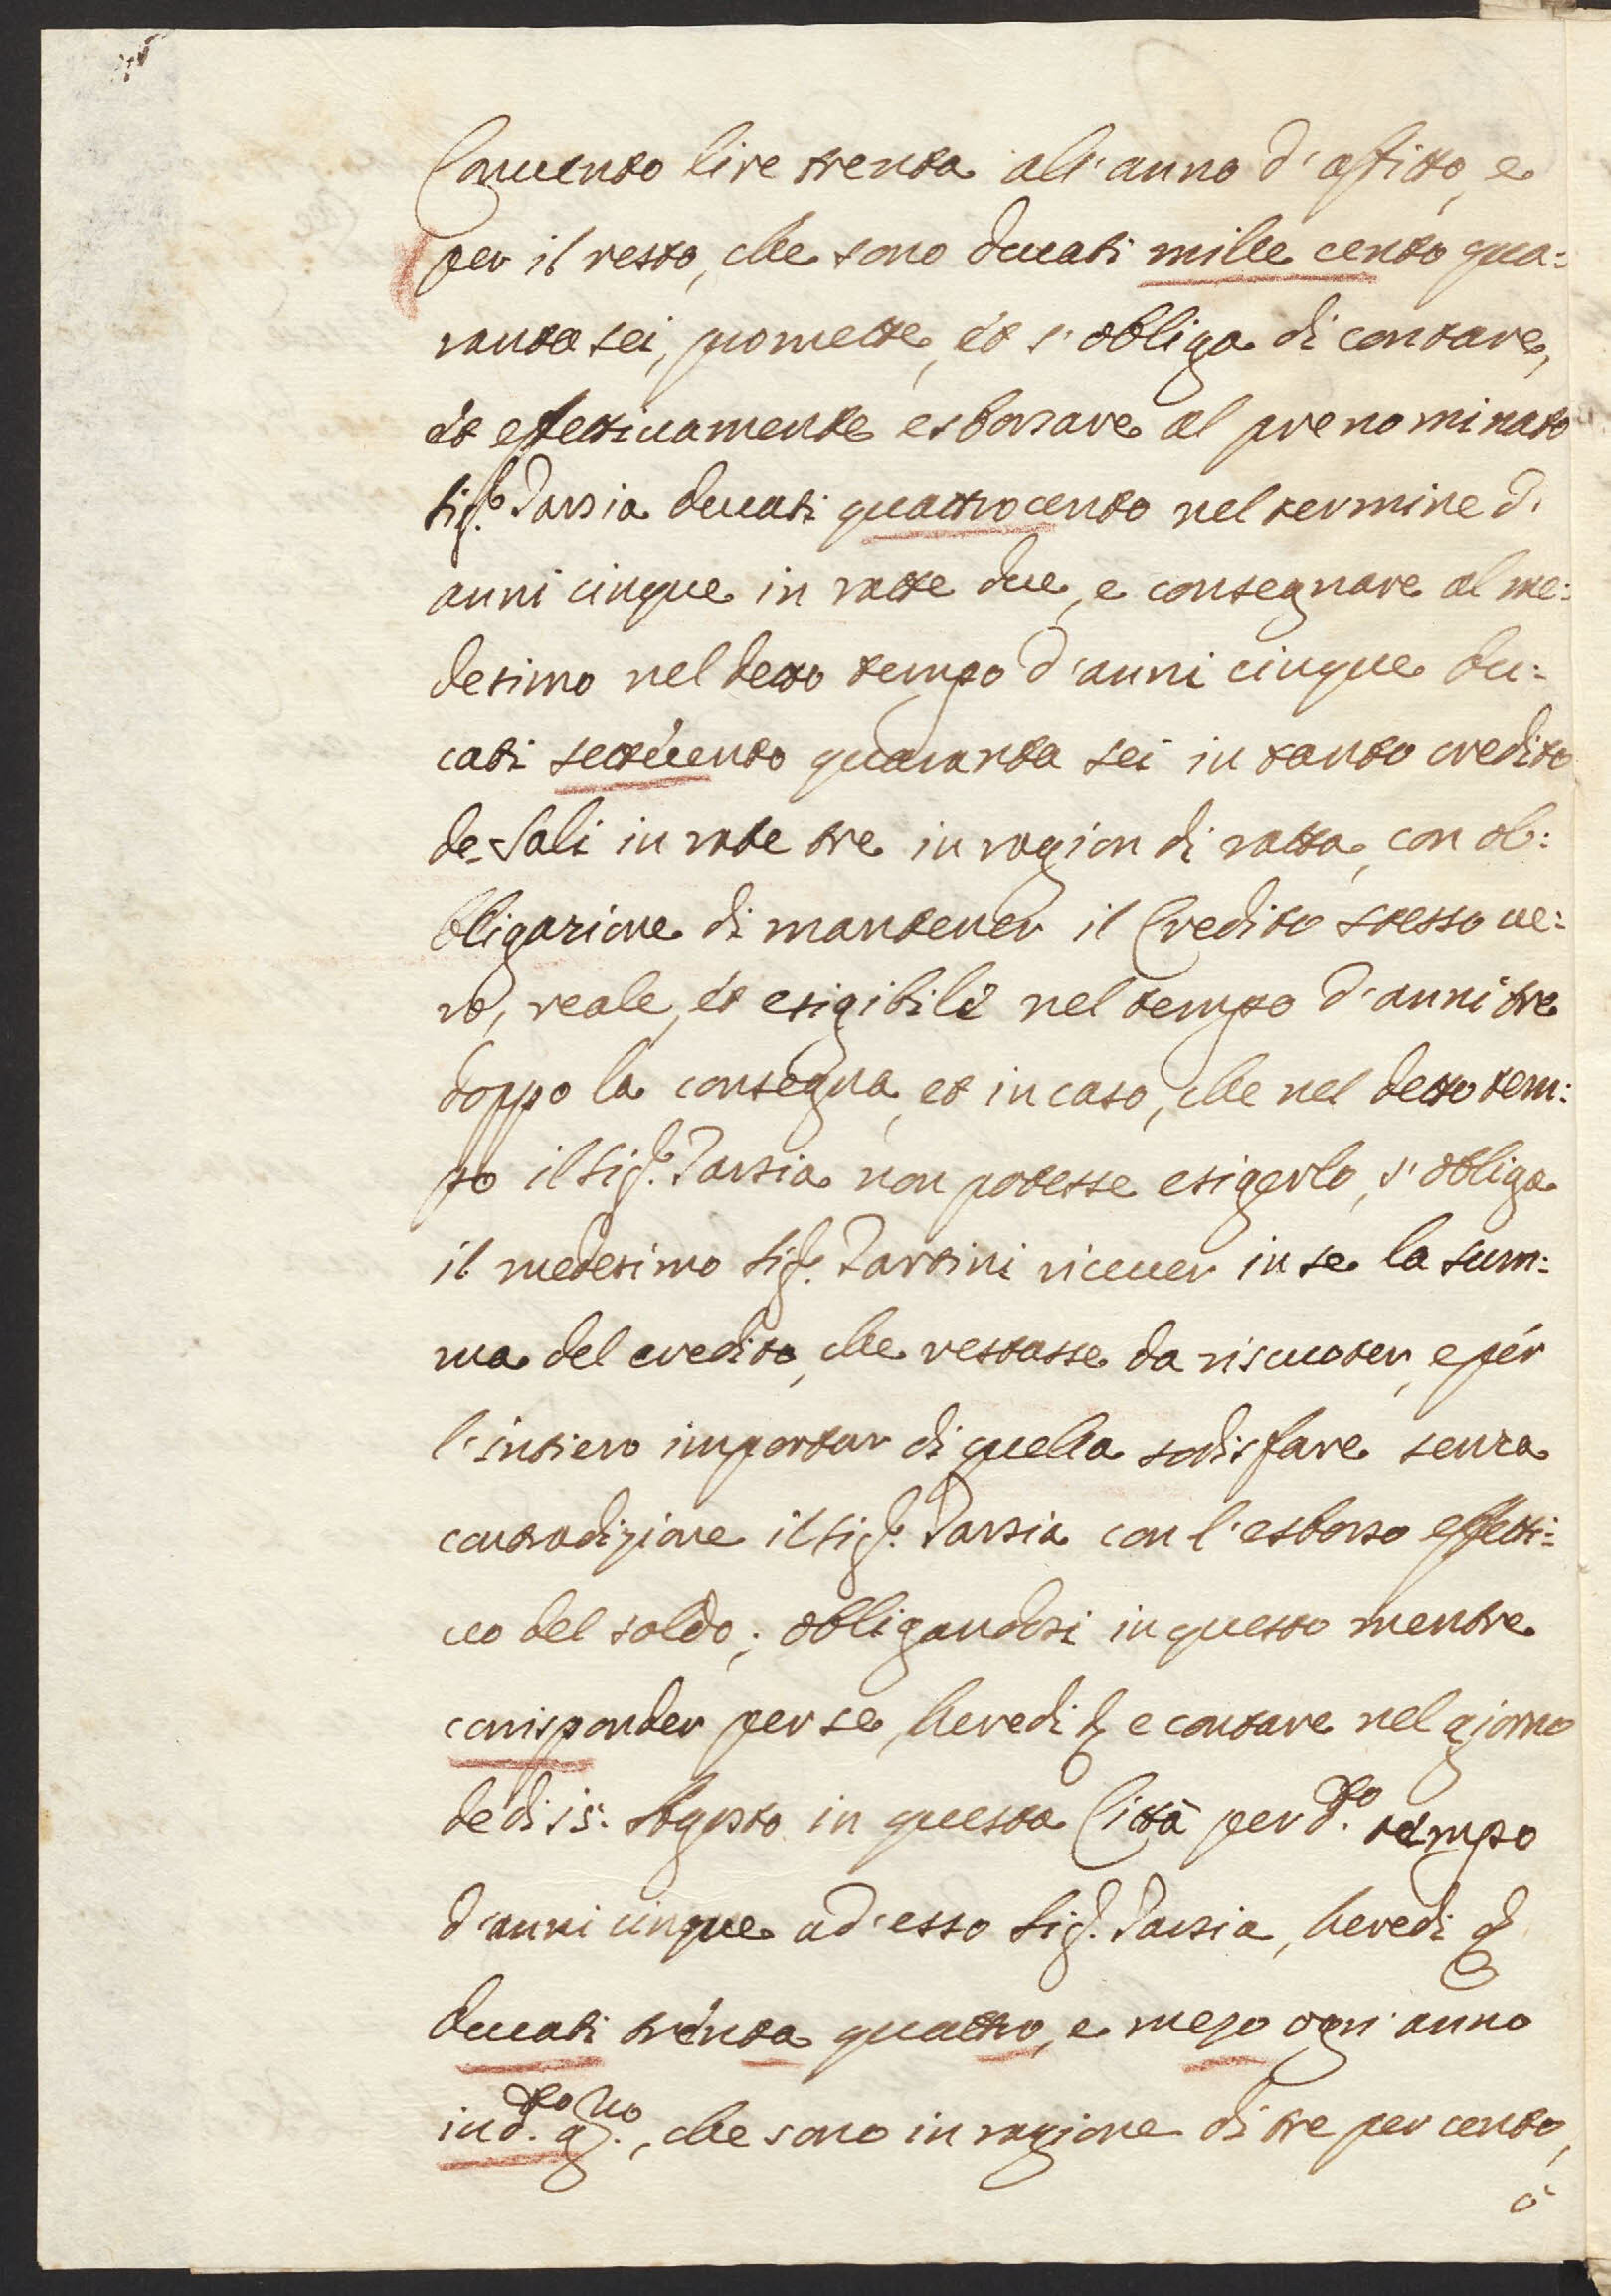 Conuento lire trenta all'anno d'affitto, e
per il resto, che sono ducati mille cento qua:
ranta sei, promette, et s'obliga di contare,
et effettiuamente esborsare al prenominato
Sig.r Tarsia ducati quattrocento nel termine d'
anni cinque in ratte due, e consegnare al me:
desimo nel detto tempo d'anni cinque du:
cati settecento quaranta sei in tanto credito
de Sali in rate tre in ragion di ratta, con ob:
bligazione di mantener il Credito stesso ue:
ro, reale, et esigibile nel tempo d'anni tre
doppo la consegna, et in caso, che nel detto tem:
po il Sig.r Tarsia non potesse esigerlo, s'obliga
il medesimo Sig.r Tartini riceuer in se la sum:
ma del credito, che restasse da riscuoter, e per
l'intiero importar di quella sodisfare senza
contradizione il Sig.r Tarsia con l'esborso effetti:
uo del soldo; obligandosi in questo mentre
corrisponder per se, heredi e contare nel giorno
de di 15: Agosto in questa Città per d.to tempo
d'anni cinque ad'esso Sig.r Tarsia, heredi
ducati trenta quattro, e mezo ogni anno
in d.to g.no, che sono in ragione di tre per cento,
ò